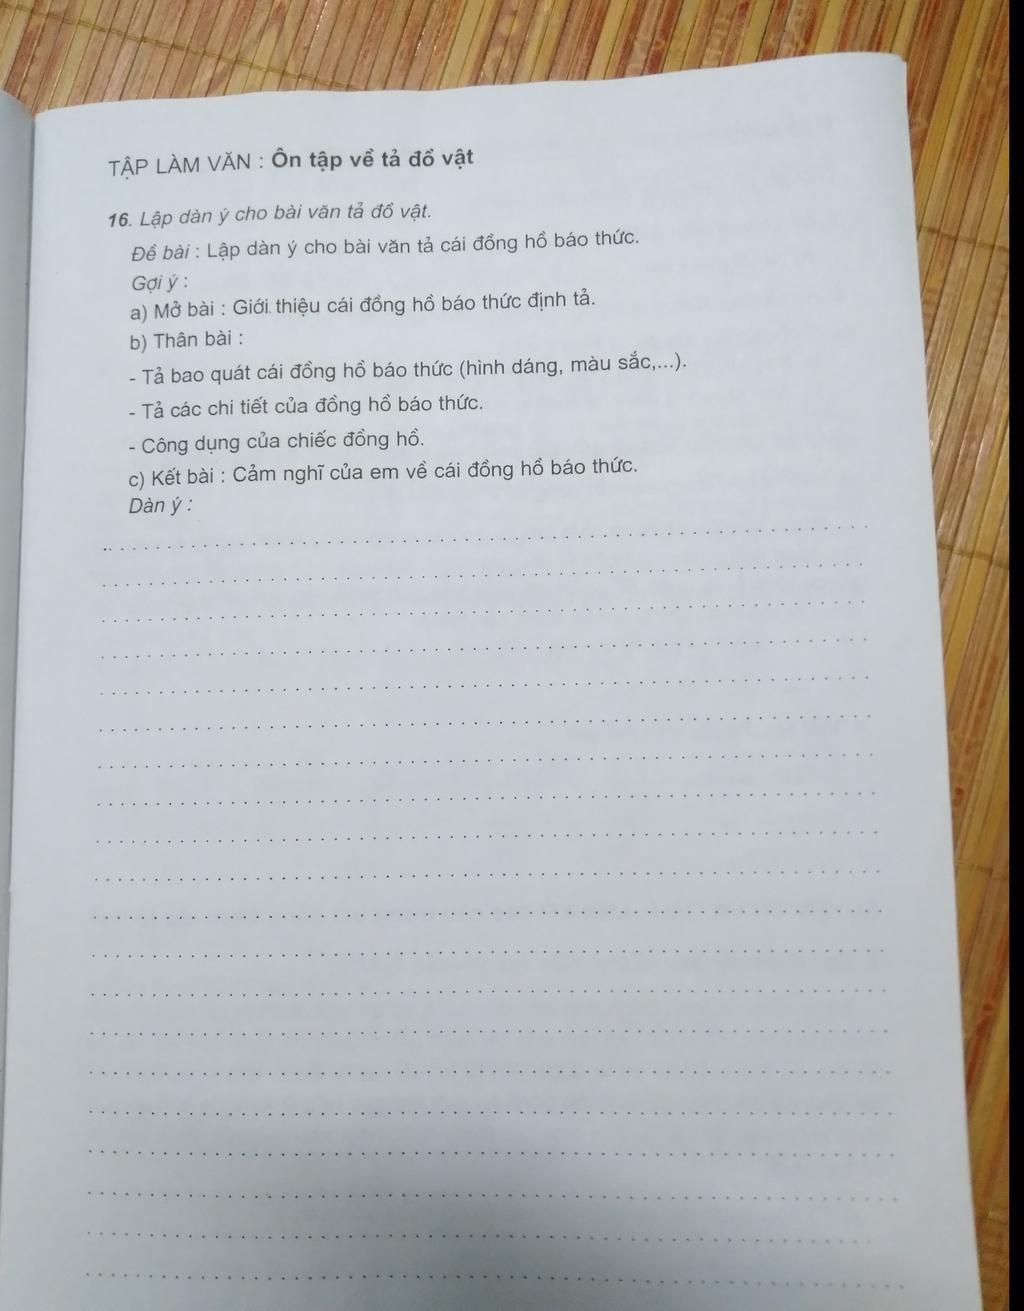 TẬP LÀM VĂN : Ôn tập về tả đồ vật
16. Lập dàn ý cho bài văn tả đồ vật.
Đề bài : Lập dàn ý cho bài văn tả cái đồng hồ báo thức.
Gợi ý :
a) Mở bài : Giới thiệu cái đồng hồ báo thức định tả.
b) Thân bài :
- Tả bao quát cái đồng hồ báo thức (hình dáng, màu sắc,...).
- Tả các chi tiết của đồng hồ báo thức.
- Công dụng của chiếc đồng hồ.
c) Kết bài : Cảm nghĩ của em về cái đồng hồ báo thức.
Dàn ý :